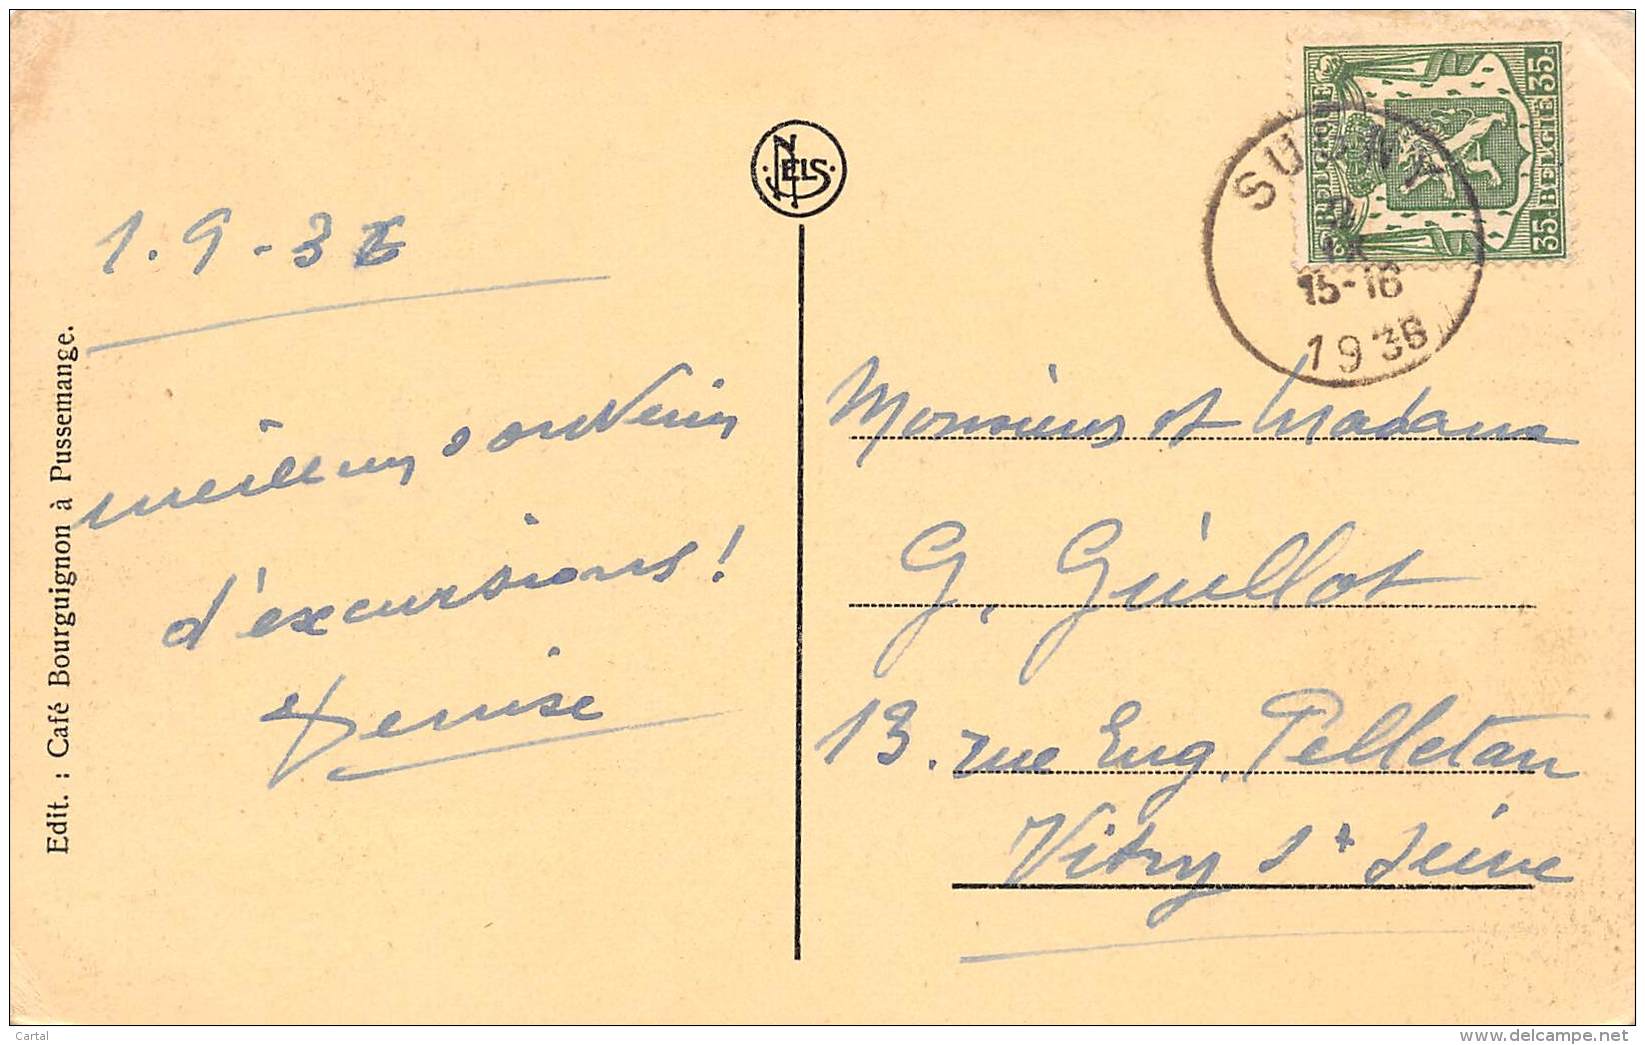 NELS
BELGIQUE 35c
35c BELGIE
SUGNY
15-16
1936
1.9-36
meilleurs souvenirs
d'excursions!
Denise
Monsieur et Madame
G. Guillot
13. rue Eug. Pelletan
Vitry s/ Seine
Edit. : Café Bourguignon à Pussemange.
Cartal
www.delcampe.net